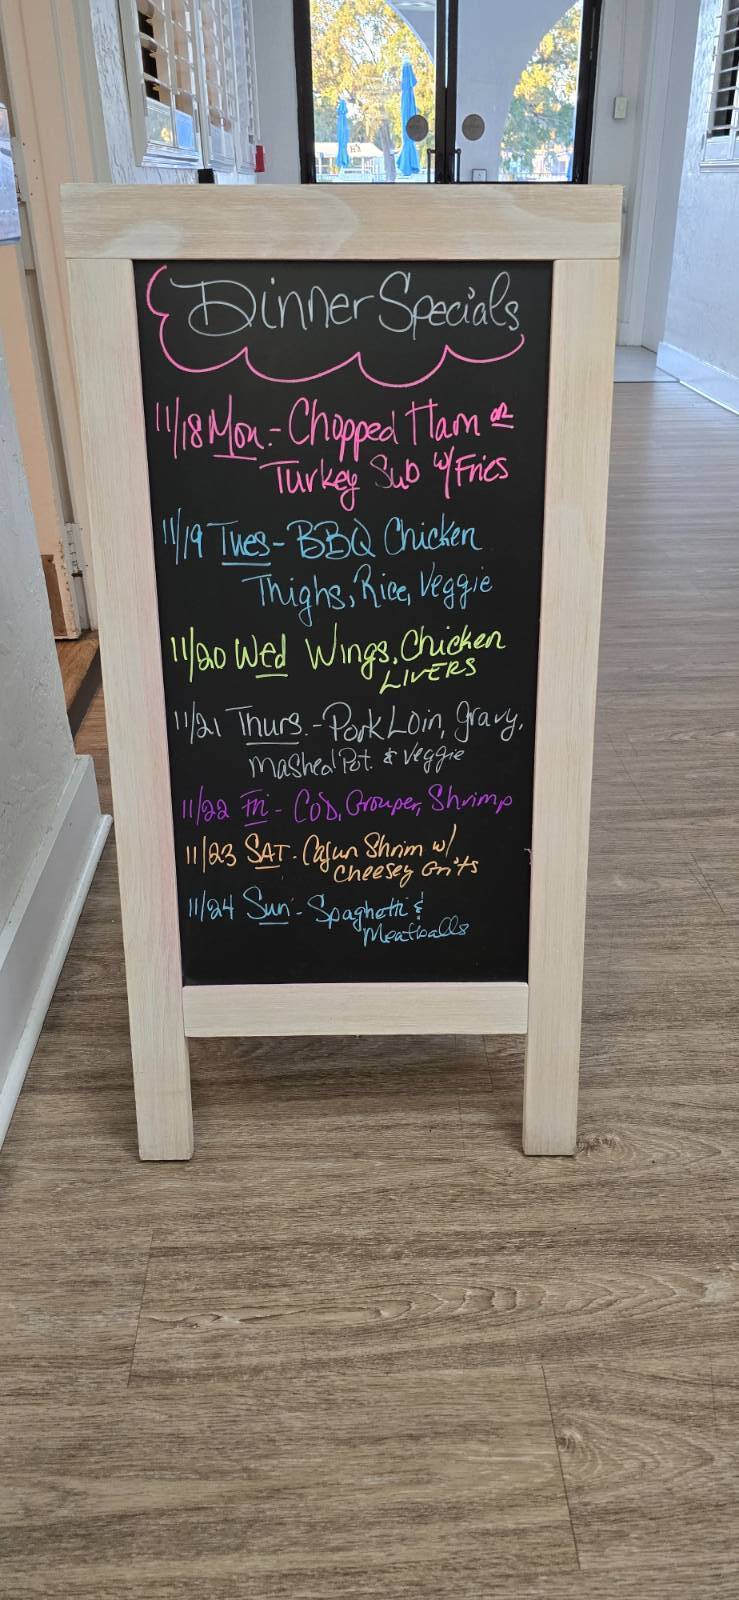 Dinner Specials
11/18 Mon.- Chopped Ham or
Turkey Sub w/ Fries
11/19 Tues - BBQ Chicken
Thighs, Rice, Veggie
11/20 Wed Wings, Chicken
LIVERS
11/21 Thurs.- Pork Loin, gravy,
Mashed Pot. & Veggie
11/22 Fri - Cod, Grouper, Shrimp
11/23 SAT - Cajun Shrim w/
Cheesey Grits
11/24 Sun - Spaghetti &
Meatballs